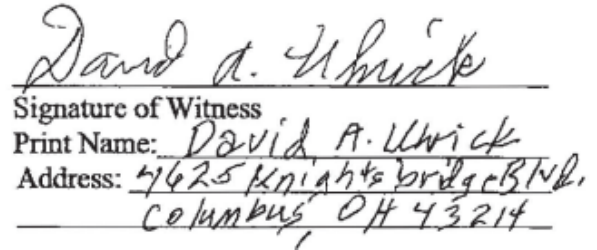 David A. Ulwick
Signature of Witness
Print Name: David A. Ulwick
Address: 4625 Knightsbridge Blvd.
Columbus, OH 43214